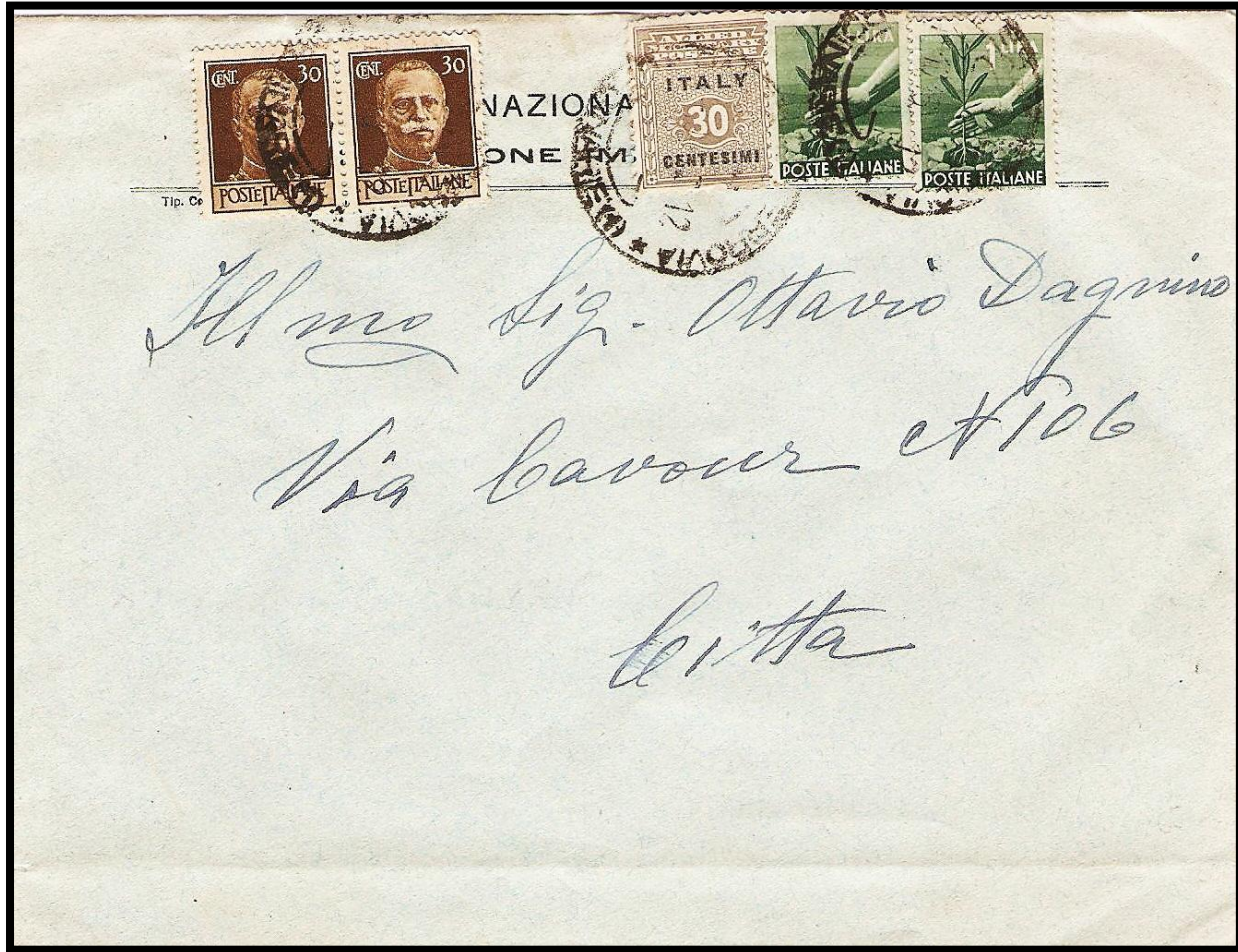 CENT. 30
CENT. 30
POSTE ITALIANE
POSTE ITALIANE
NAZIONA
ONE
Tip.
ALLIED MILITARY POSTAGE
ITALY
30
CENTESIMI
POSTE ITALIANE
POSTE ITALIANE
12
Illmo Sig. Ottavio Dagnino
Via Cavour N 106
Citta